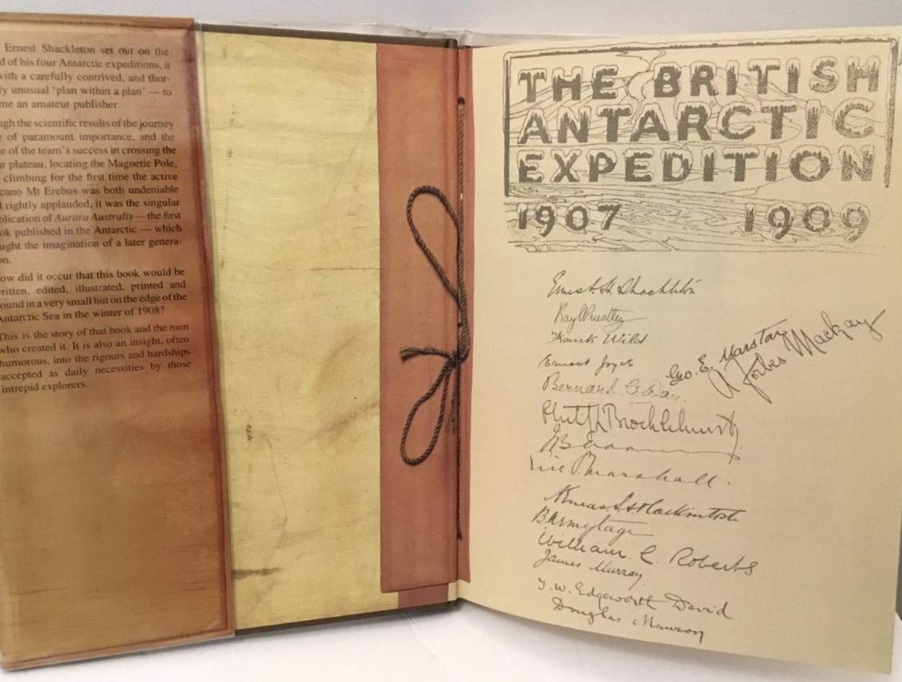 Ernest Shackleton set out on the
d of his four Antarctic expeditions, it
with a carefully contrived, and thor-
ly unusual 'plan within a plan' — to
me an amateur publisher.
gh the scientific results of the journey
of paramount importance, and the
e of the team's success in crossing the
r plateau, locating the Magnetic Pole,
climbing for the first time the active
cano Mt Erebus was both undeniable
rightly applauded, it was the singular
blication of Aurora Australis — the first
ok published in the Antarctic — which
ught the imagination of a later genera-
on.
ow did it occur that this book would be
ritten, edited, illustrated, printed and
ound in a very small hut on the edge of the
Antarctic Sea in the winter of 1908?
This is the story of that book and the men
who created it. It is also an insight, often
humorous, into the rigours and hardships
accepted as daily necessities by those
intrepid explorers.
THE BRITISH
ANTARCTIC
EXPEDITION
1907 1909
Ernest H Shackleton
Raymond Priestley
Frank Wild
Ernest Joyce
Geo. E. Marston
A Forbes Mackay
Bernard C. Day.
Philip L Brocklehurst
Eric P. Marshall.
Aeneas L A Mackintosh
B Armytage
William C. Roberts
James Murray.
T. W. Edgeworth David
Douglas Mawson